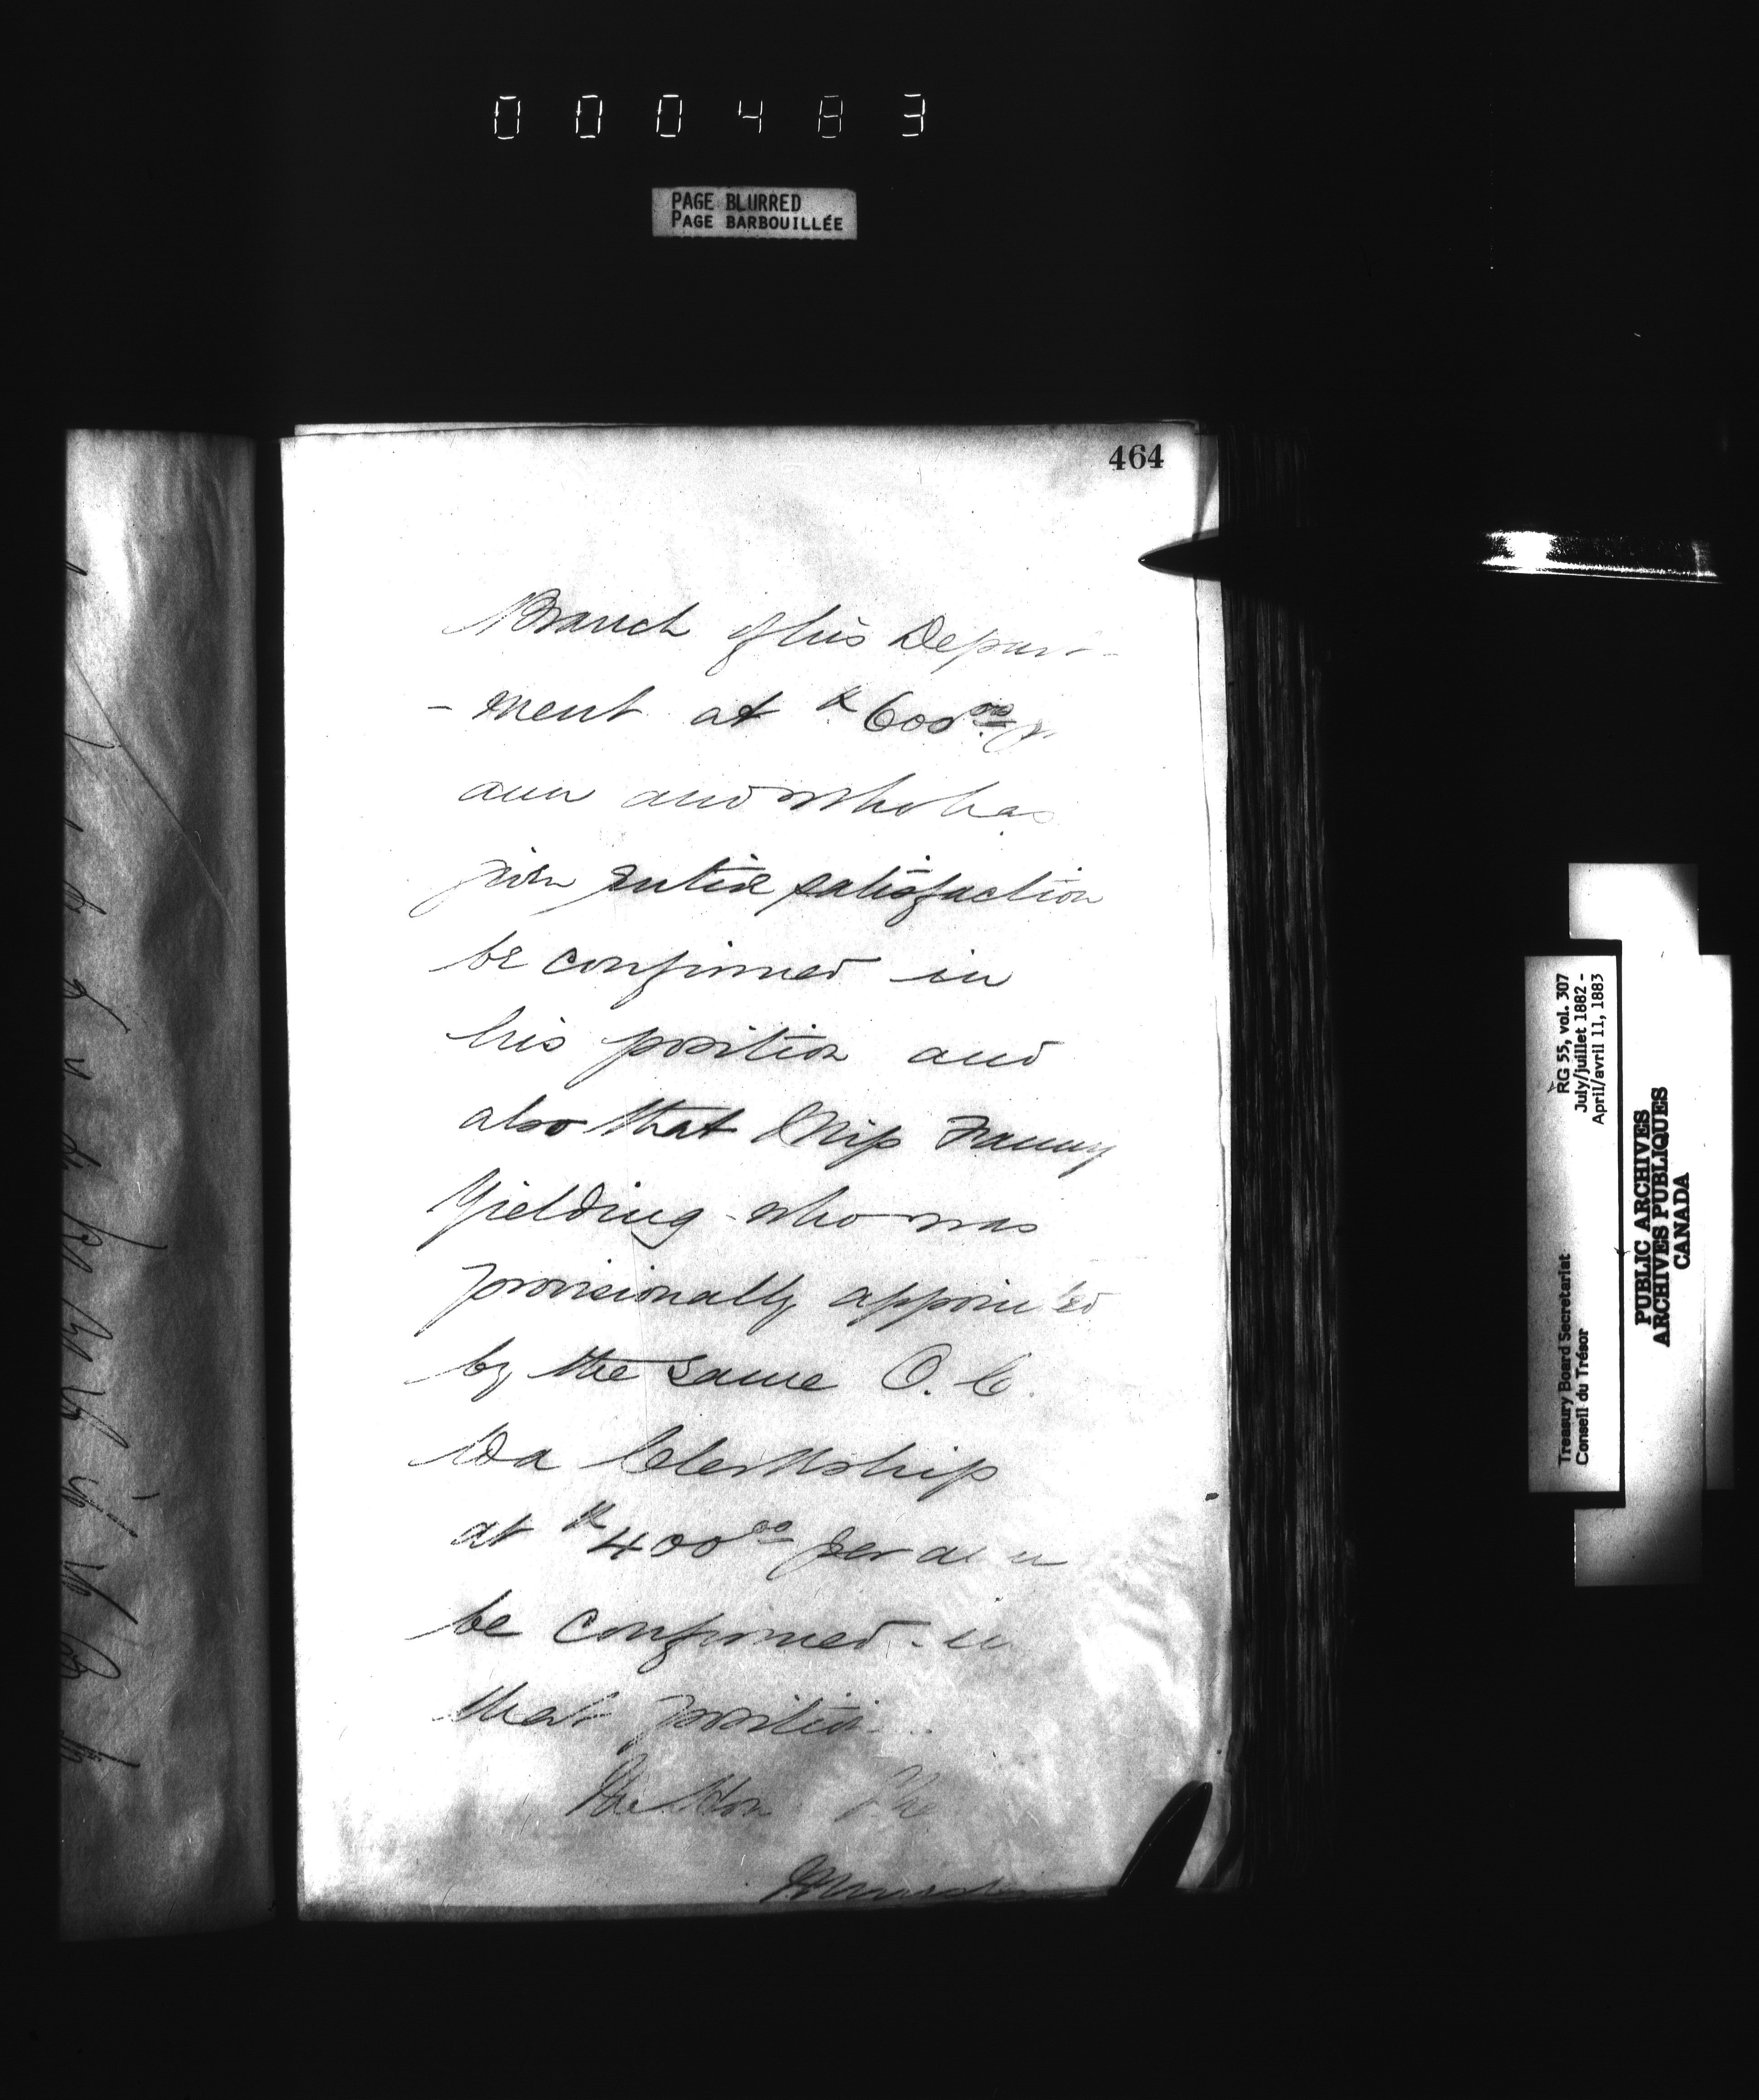 000483
PAGE BLURRED
PAGE BARBOUILLÉE
464
Branch of his Depart-
-ment at $600.00 p.
ann and who has
given entire satisfaction
be confirmed in
his position and
also that Miss Fanny
Yielding who was
provisionally appointed
by the same O.C.
to a Clerkship
at $400.00 per ann
be confirmed in
that position
The Hon The
RG 55, vol. 307
July/juillet 1882 -
April/avril 11, 1883
Treasury Board Secretariat
Conseil du Trésor
PUBLIC ARCHIVES
ARCHIVES PUBLIQUES
CANADA